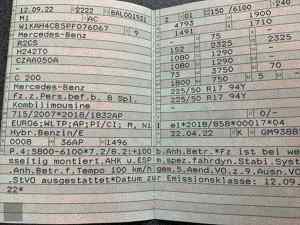 12.09.22 2222 BAL001521 2 01 150 /6100 240
M1 AC 4793 1900
W1KAH4CB5PF076067 9 1491 1710
Mercedes-Benz
R2CS 75 2325
H242T0 1152 2325
CZAA050A
-
C 200 73 3750
Mercedes-Benz 75 1800 750 5
Fz.z.Pers.bef.b. 8 Spl. 225/50 R17 94Y
Kombilimousine 225/50 R17 94Y
715/2007*2018/1832AP
EURO6;WLTP;AP;PI/CI; M, N1 0/-
Hybr.Benzin/E e1*2018/858*00017*04
0008 36AP 1496 22.04.22 K
P.4:5800-6100*7.2/8.2:+100 b.Anh.Betr.*Fz ist bei we
sseitig montiert.AHK u.ESP m.spez.fahrdyn.Stabil.Syst
.Anh.Betr.f.Tempo 100 km/h gem.5.Aend.VO.z.9.Ausn.VO
.StVO ausgestattet*Datum zur Emissionsklasse: 12.09.
22*